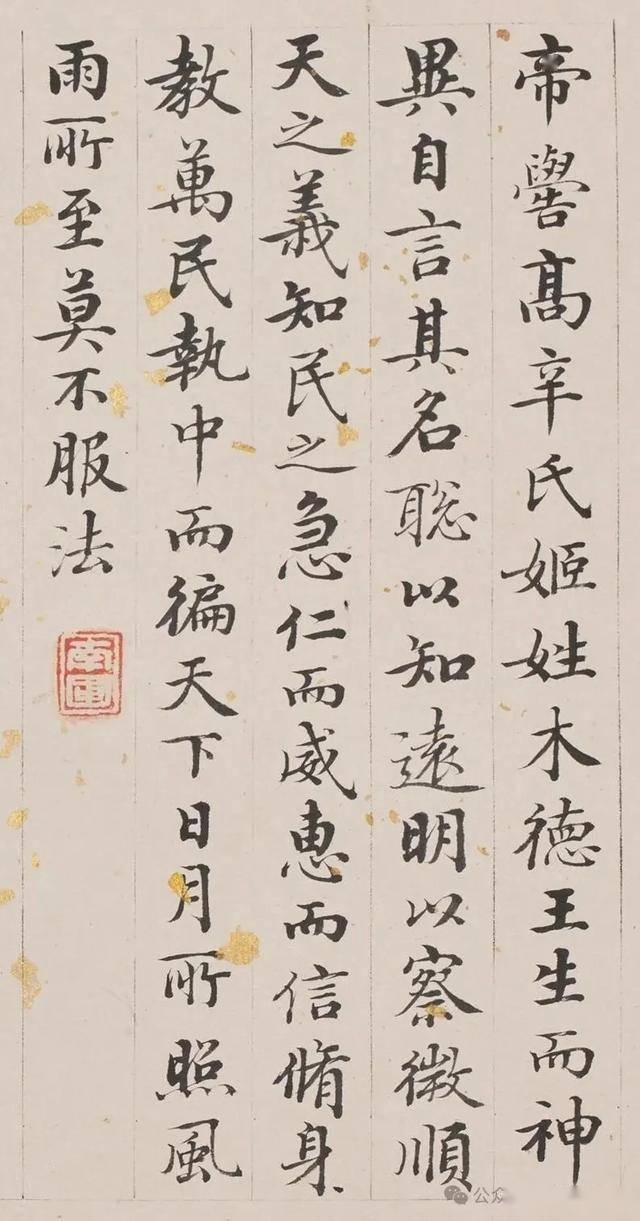 帝嚳髙辛氏姬姓木德王生而神
異自言其名聡以知遠明以察微順
天之義知民之急仁而威惠而信脩身
教萬民執中而徧天下日月所照風
雨所至莫不服法
公众